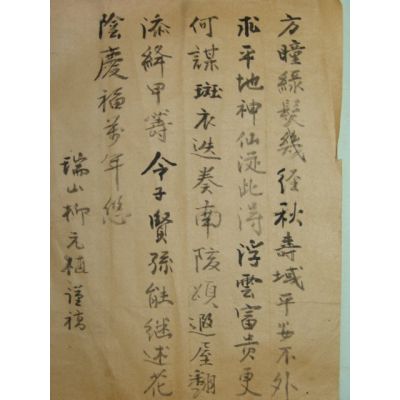 方瞳綠髮幾經秋壽域平安不外
求平地神仙從此得浮雲富貴更
何謀斑衣迭奏南陔頌遐屋翻
添絳甲籌令子賢孫能継述花
陰慶福萬年悠
瑞山柳元植謹稿